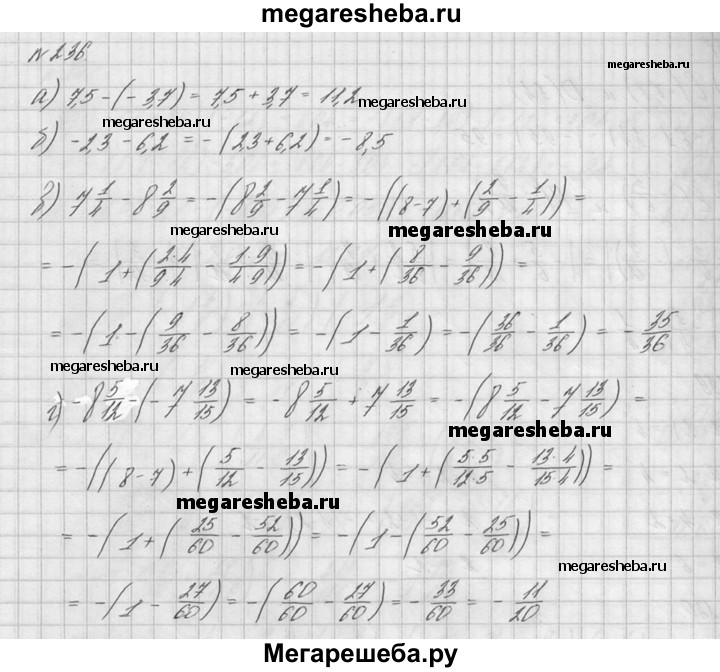 megaresheba.ru
№236.
megaresheba.ru
а) 7,5-(-3,7) = 7,5+3,7 = 11,2
megaresheba.ru
megaresheba.ru
б) -2,3-6,2 = -(2,3+6,2) = -8,5
в) 7 1/4 - 8 2/9 = -(8 2/9 - 7 1/4) = -((8-7)+(2/9 - 1/4)) =
megaresheba.ru
megaresheba.ru
= -(1+(2·4/9·4 - 1·9/4·9)) = -(1+(8/36 - 9/36)) =
= -(1-(9/36 - 8/36)) = -(1 - 1/36) = -(36/36 - 1/36) = -35/36
megaresheba.ru
megaresheba.ru
г) -8 5/12 - (-7 13/15) = -8 5/12 + 7 13/15 = -(8 5/12 - 7 13/15) =
megaresheba.ru
= -((8-7)+(5/12 - 13/15)) = -(1+(5·5/12·5 - 13·4/15·4)) =
megaresheba.ru
= -(1+(25/60 - 52/60)) = -(1-(52/60 - 25/60)) =
megaresheba.ru
= -(1 - 27/60) = -(60/60 - 27/60) = -33/60 = -11/20
Мегарешеба.ру